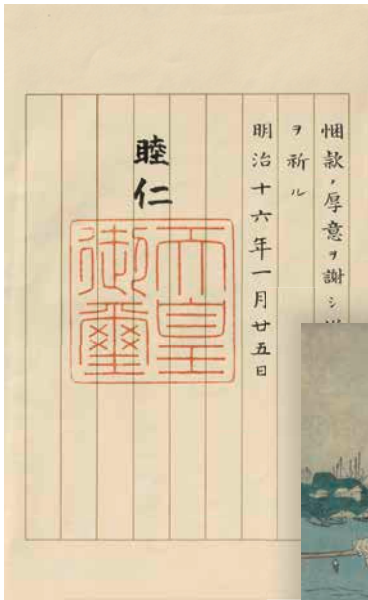 悃款ノ厚意ヲ謝シ
ヲ祈ル
明治十六年一月廿五日
睦仁
天皇
御璽